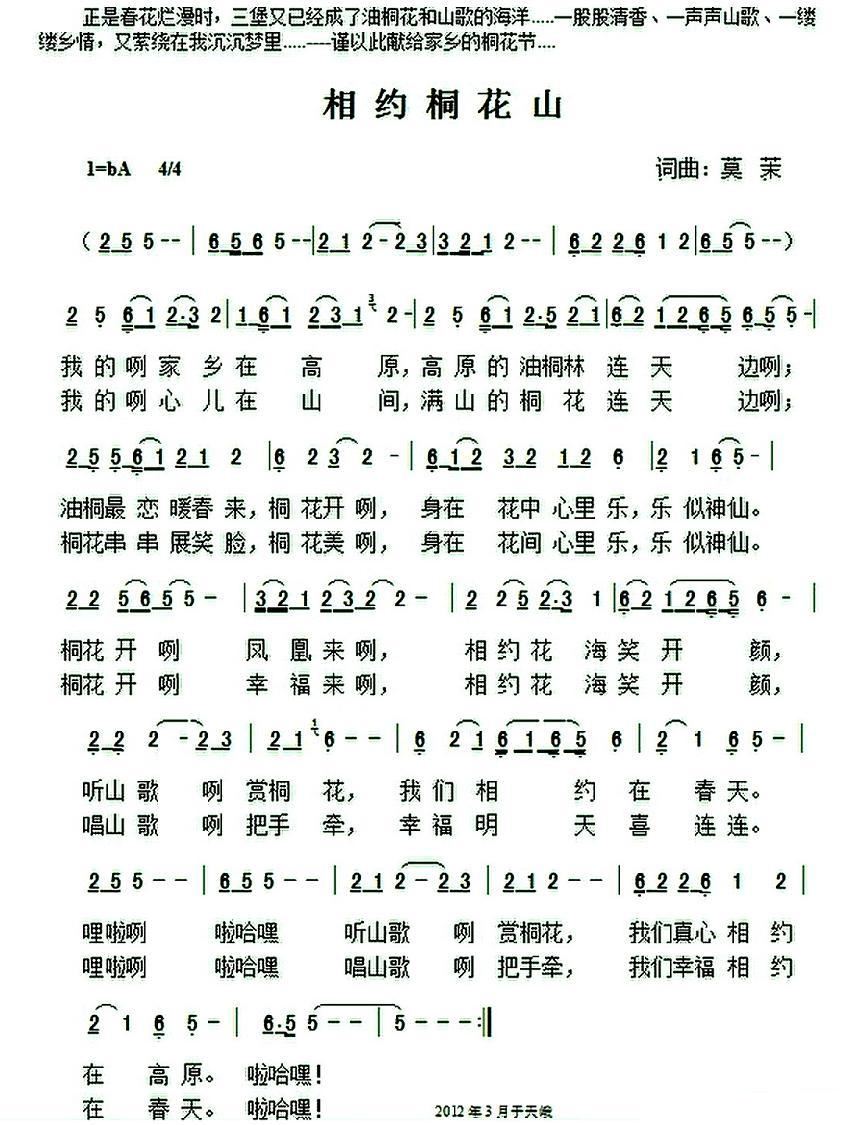 正是春花烂漫时，三堡又已经成了油桐花和山歌的海洋.....一股股清香、一声声山歌、一缕
缕乡情，又萦绕在我沉沉梦里.....----谨以此献给家乡的桐花节....
相约桐花山
1=bA 4/4 词曲：莫 茉
（2 5 5 -- | 6 5 6 5 -- | 2 1 2 - 2 3 | 3 2 1 2 -- | 6 2 2 6 1 2 | 6 5 5 --）
2 5 6 1 2·3 2 | 1 6 1 2 3 1 2 - | 2 5 6 1 2·5 2 1 | 6 2 1 2 6 5 6 5 5 - |
我的咧家乡在高原，高原的油桐林连天边咧；
我的咧心儿在山间，满山的桐花连天边咧；
2 5 5 6 1 2 1 2 | 6 2 3 2 - | 6 1 2 3 2 1 2 6 | 2 1 6 5 - |
油桐最恋暖春来，桐花开咧，身在花中心里乐，乐似神仙。
桐花串串展笑脸，桐花美咧，身在花间心里乐，乐似神仙。
2 2 5 6 5 5 - | 3 2 1 2 3 2 2 - | 2 2 5 2·3 1 | 6 2 1 2 6 5 6 - |
桐花开咧凤凰来咧，相约花海笑开颜，
桐花开咧幸福来咧，相约花海笑开颜，
2 2 2 - 2 3 | 2 1 6 - - | 6 2 1 6 1 6 5 6 | 2 1 6 5 - |
听山歌咧赏桐花，我们相约在春天。
唱山歌咧把手牵，幸福明天喜连连。
2 5 5 - - | 6 5 5 - - | 2 1 2 - 2 3 | 2 1 2 - - | 6 2 2 6 1 2 |
哩啦咧啦哈嘿听山歌咧赏桐花，我们真心相约
哩啦咧啦哈嘿唱山歌咧把手牵，我们幸福相约
2 1 6 5 - | 6·5 5 - - | 5 - - - :||
在高原。啦哈嘿！
在春天。啦哈嘿！
2012年3月于天峨